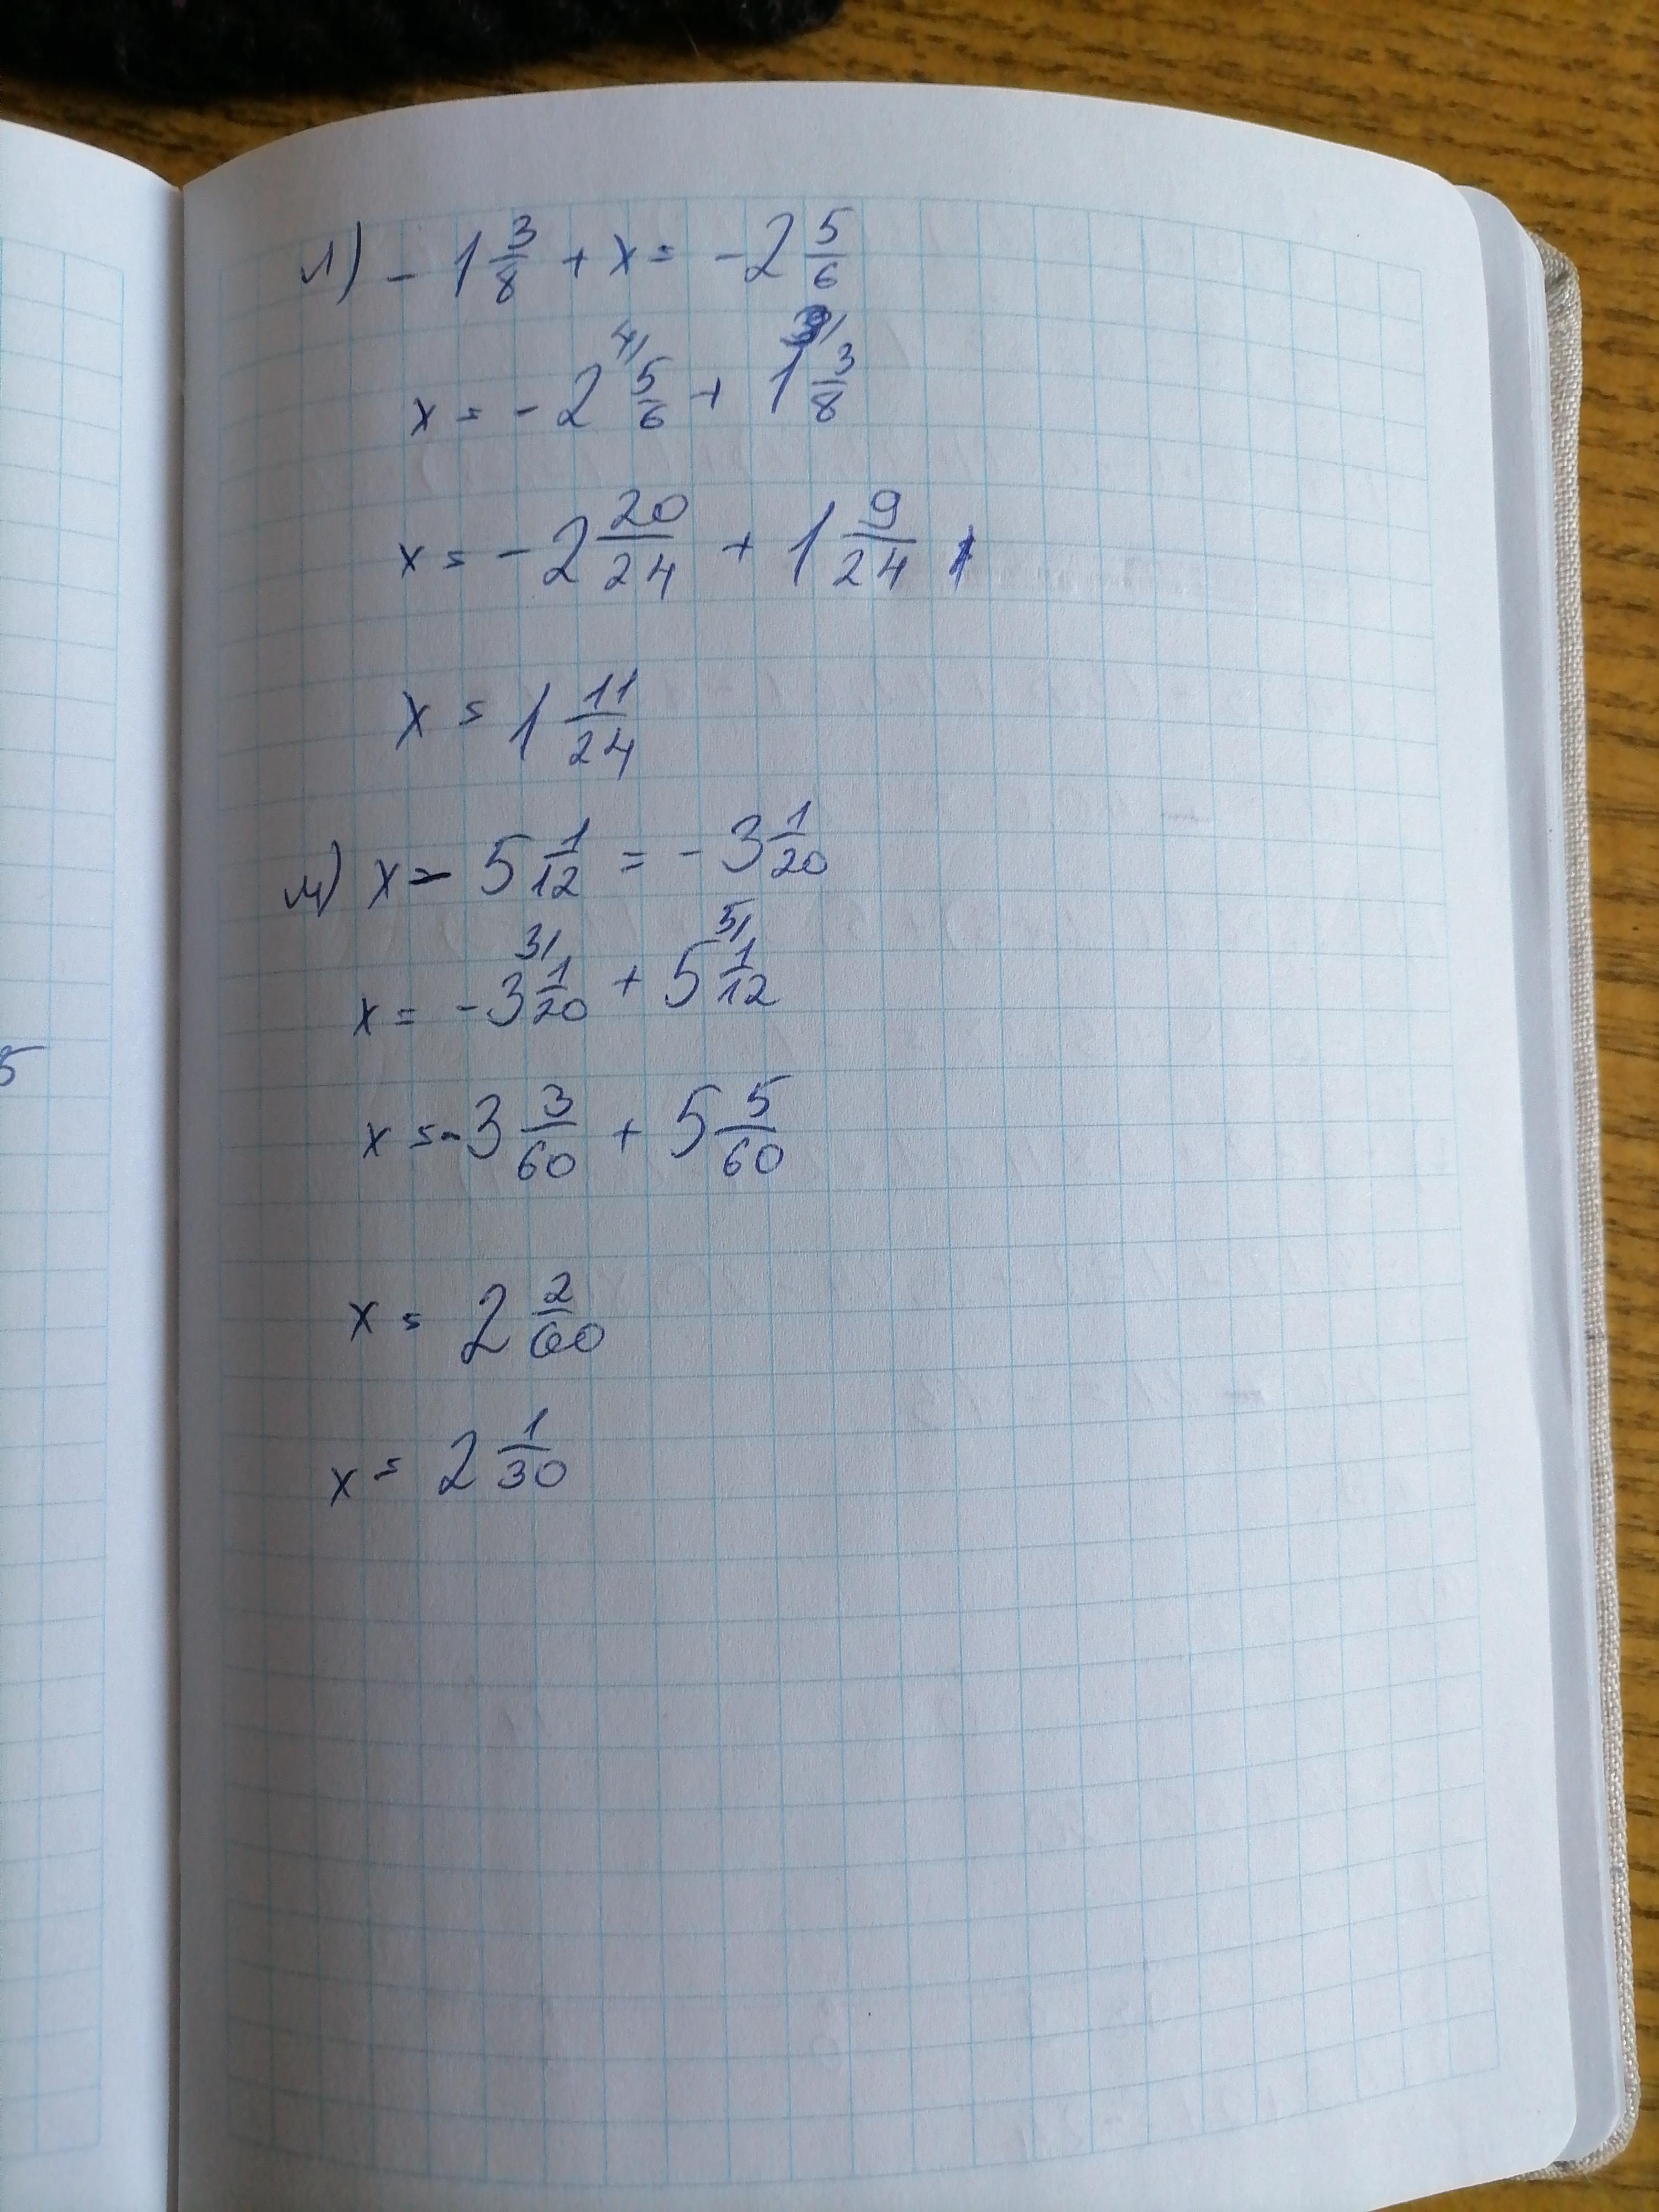 л) - 1 3/8 + x = - 2 5/6
x = - 2 4/ 5/6 + 1 3/ 3/8
x = - 2 20/24 + 1 9/24
x = 1 11/24
м) x - 5 1/12 = - 3 1/20
x = - 3 3/ 1/20 + 5 5/ 1/12
x = - 3 3/60 + 5 5/60
x = 2 2/60
x = 2 1/30
5